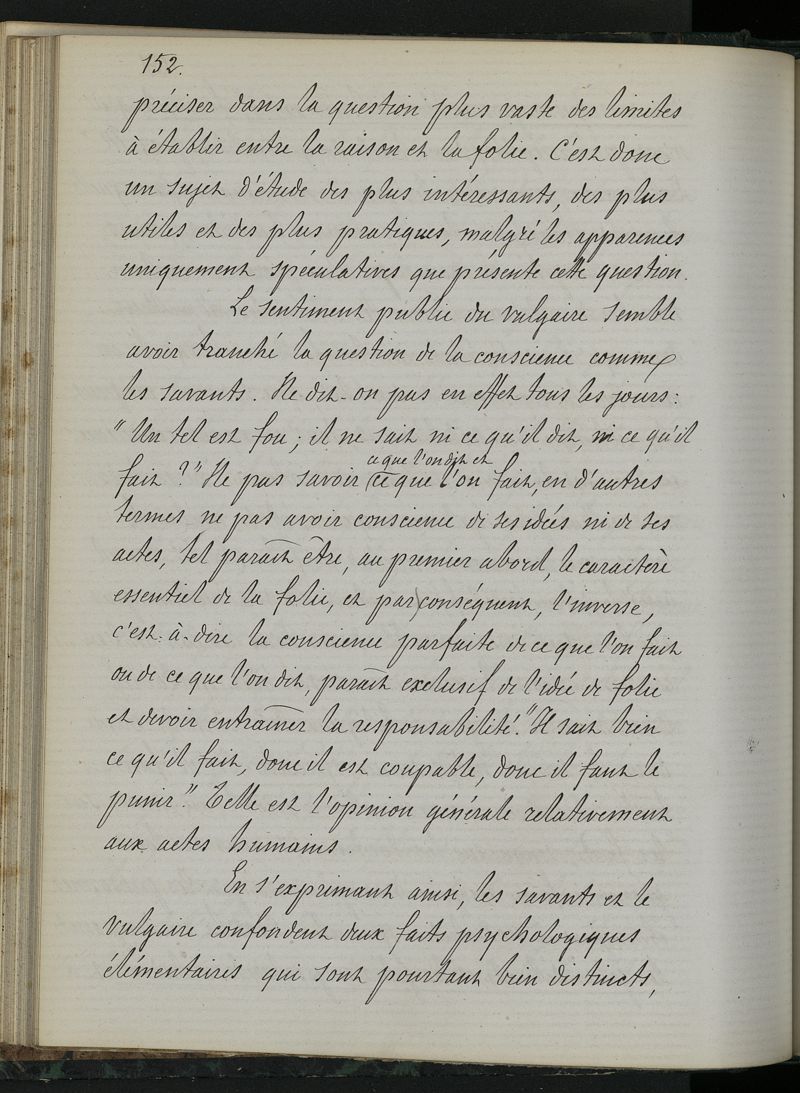 152.
préciser dans la question plus vaste des limites
à établir entre la raison et la folie. C'est donc
un sujet d'étude des plus intéressants, des plus
utiles et des plus pratiques, malgré les apparences
uniquement spéculatives que présente cette question.
Le sentiment public du vulgaire semble
avoir tranché la question de la conscience comme
les savants. Ne dit-on pas en effet tous les jours:
"Un tel est fou; il ne sait ni ce qu'il dit, ni ce qu'il
ce que l'on dit et
fait?" Ne pas savoir (ce que l'on fait, en d'autres
termes ne pas avoir conscience de ses idées ni de ses
actes, tel paraît être, au premier abord, le caractère
essentiel de la folie, et par conséquent, l'inverse,
c'est-à-dire la conscience parfaite de ce que l'on fait
ou de ce que l'on dit, paraît exclusif de l'idée de folie
et devoir entraîner la responsabilité. "Il sait bien
ce qu'il fait, donc il est coupable, donc il faut le
punir". Telle est l'opinion générale relativement
aux actes humains.
En s'exprimant ainsi, les savants et le
vulgaire confondent deux faits psychologiques
élémentaires qui sont pourtant bien distincts,